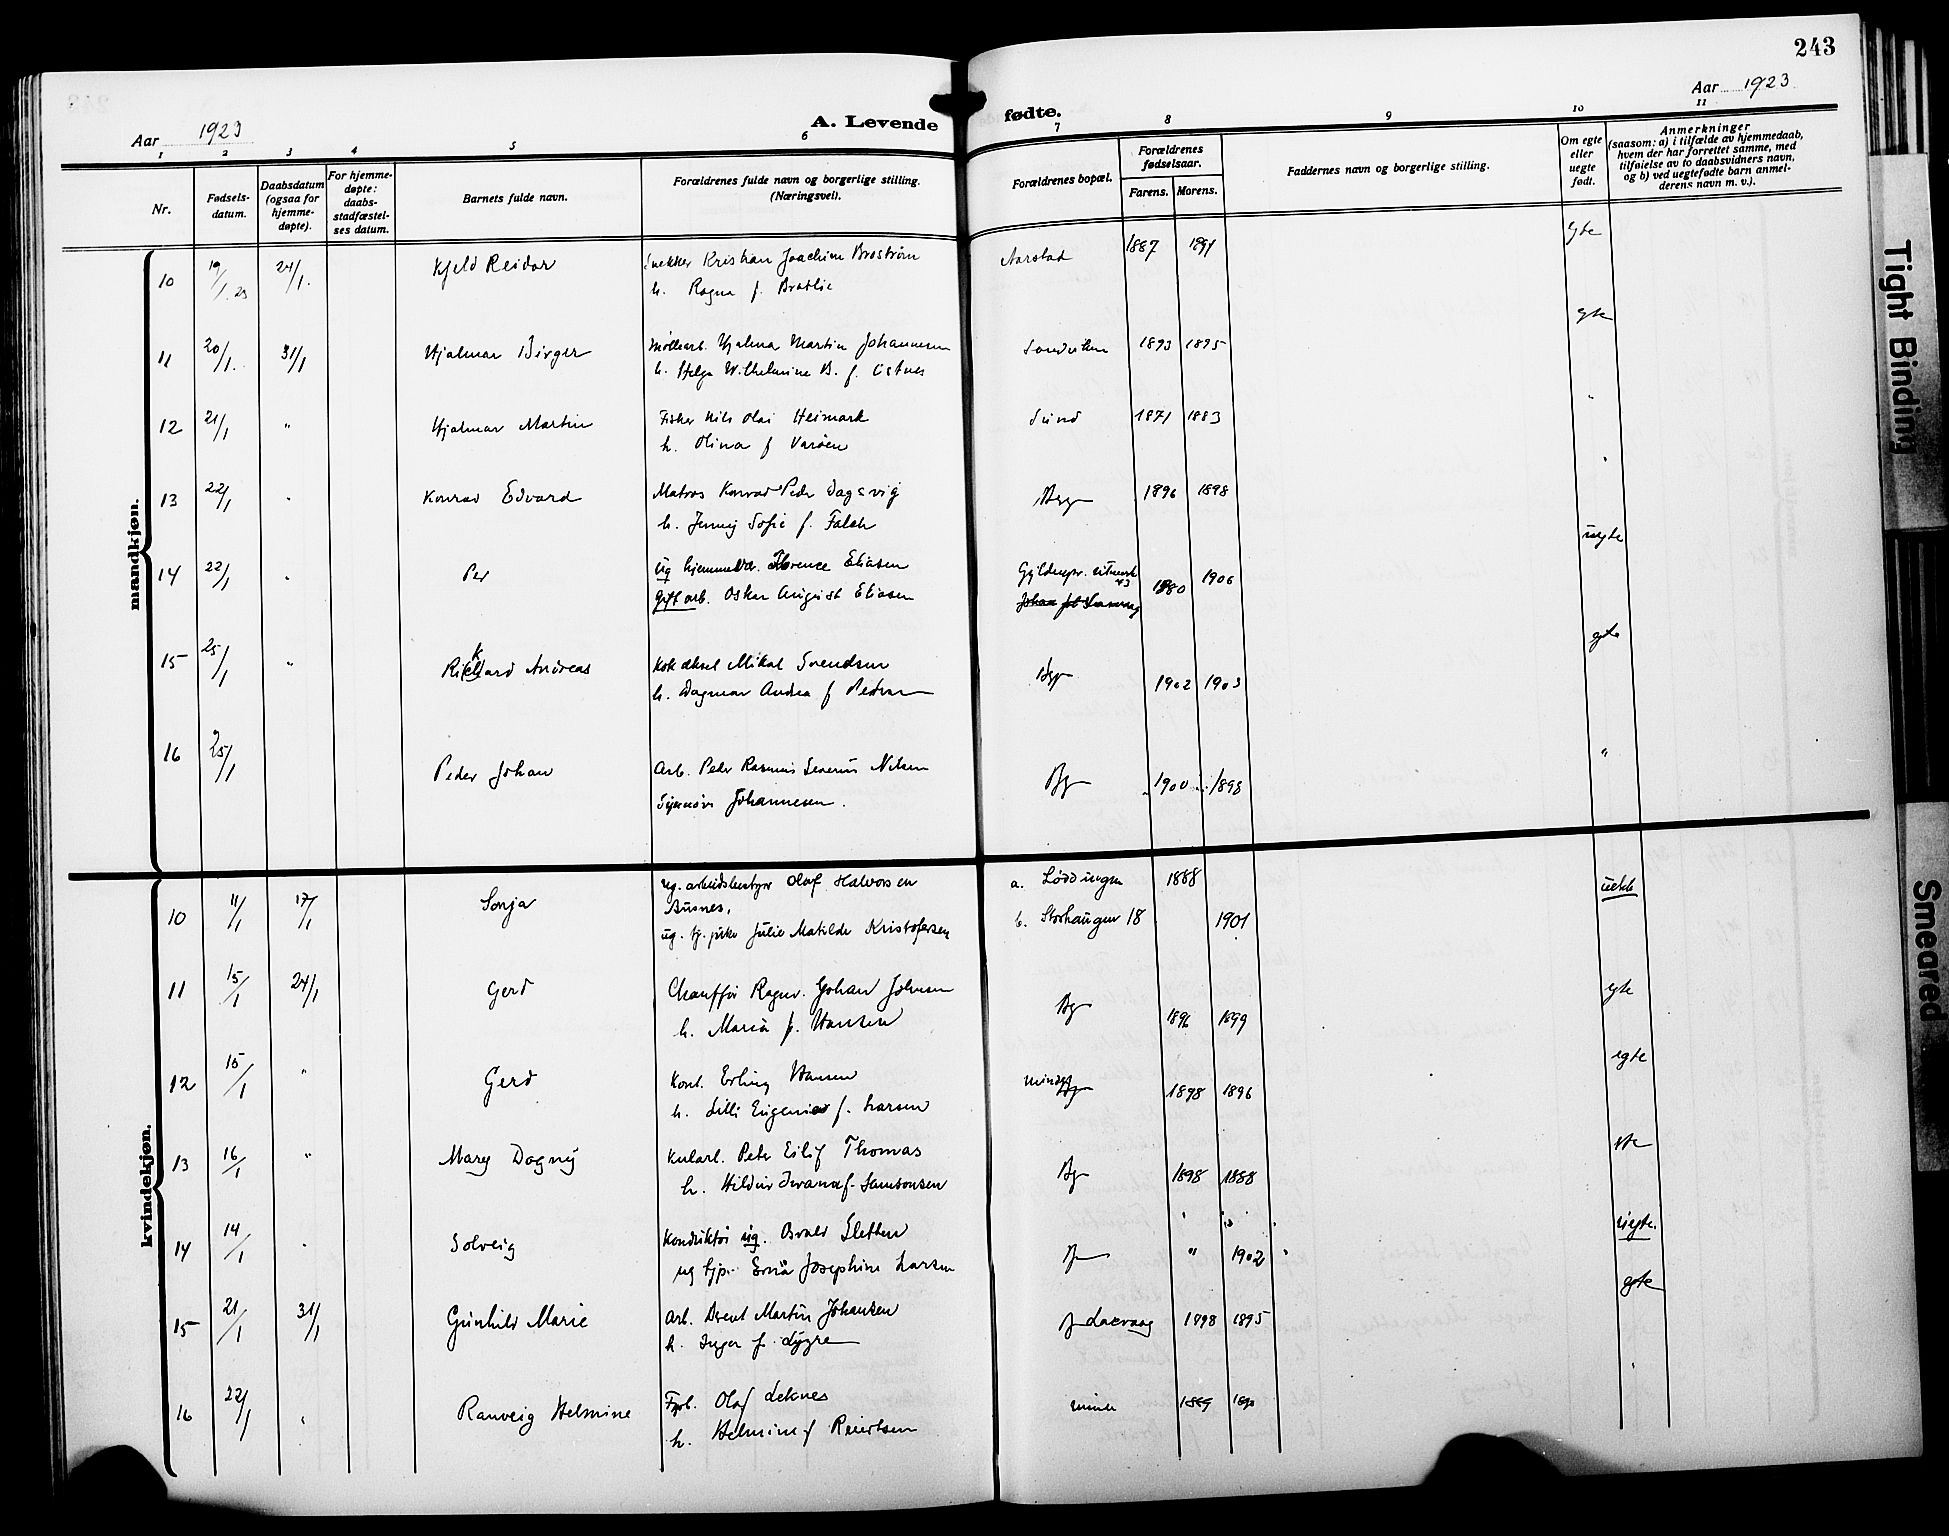 243
Aar 1923
A. Levende fødte.
Aar 1923
1 2 3 4 5 6 7 8 9 10 11
Nr.
Fødsels-
datum.
Daabsdatum
(ogsaa for
hjemme-
døpte).
For hjemme-
døpte:
daabs-
stadfæstel-
ses datum.
Barnets fulde navn.
Forældrenes fulde navn og borgerlige stilling.
(Næringsvei).
Forældrenes bopæl.
Forældrenes
fødselsaar.
Farens. Morens.
Faddernes navn og borgerlige stilling.
Om egte
eller
uegte
født.
Anmerkninger
(saasom: a) i tilfælde av hjemmedaab,
hvem der har forrettet samme, med
tilføielse av to daabsvidners navn,
og b) ved uegtefødte barn anmel-
derens navn m. v.).
mandkjøn.
10 19/1 23 24/1 Kjeld Reidar Snekker Kristian Joachim Broström Aarstad 1887 1891 egte
h. Ragna f. Bratlie
11 20/1 31/1 Hjalmar Birger Hjalmar Martin Johannesen 1893 1895 egte
h. Helga Wilhelmine B. f.
12 21/1 " Hjalmar Martin Fisker Nils Olai Heimark Sund 1871 1883 "
h. Olina f Varöen
13 22/1 " Konrad Edvard Matros Konrad Peder Dagsvig 1896 1898 "
h. Jenny Sofie f. Falch
14 22/1 " Per ug hjemmevær. Florence Eliasen 1880 1906 uegte
gift arb. Oskar August Eliasen
15 25/1 " Richard Andreas Kok Aksel Mikal Svendsen 1902 1903 egte
h. Dagmar Andrea f Pedersen
16 25/1 Peder Johan Arb. Peder Rasmus Severin Nilsen 1900 1898 "
Johannesen.
kvindekjøn.
10 11/1 17/1 Sonja ug. arbeidsbestyrer Olaf Halvorsen a. Lödingen 1888
Busnes,
ug. tj. pike Julie Matilde Kristofersen b. Storhaugen 18 1901
11 15/1 24/1 Gerd Chauffør Ragnv. Johan Johnsen 1896 1899 egte
h. Maria f. Hansen
12 15/1 " Gerd Kont. Erling Hansen 1898 1896 egte
h. Lilli Eugenie f. Larsen
13 16/1 " Mary Dagny Kularb. Peter Eilif Thomas 1898 1888
h. Hildur Ivana f. Samsonsen
14 14/1 " Solveig Konduktør ug. Osvald Sletten " 1902 uegte.
ug tjp. Erna Josephine Larsen
15 21/1 31/1 Gunhild Marie Arb. Bernt Martin Johansen Laxevaag 1898 1895 egte
h. Inger f. Lygre
16 22/1 " Ranveig Helmine Olaf Leknes Minde 1889 1890 "
h. Helmine f Reiertsen
Tight Binding
Smeared